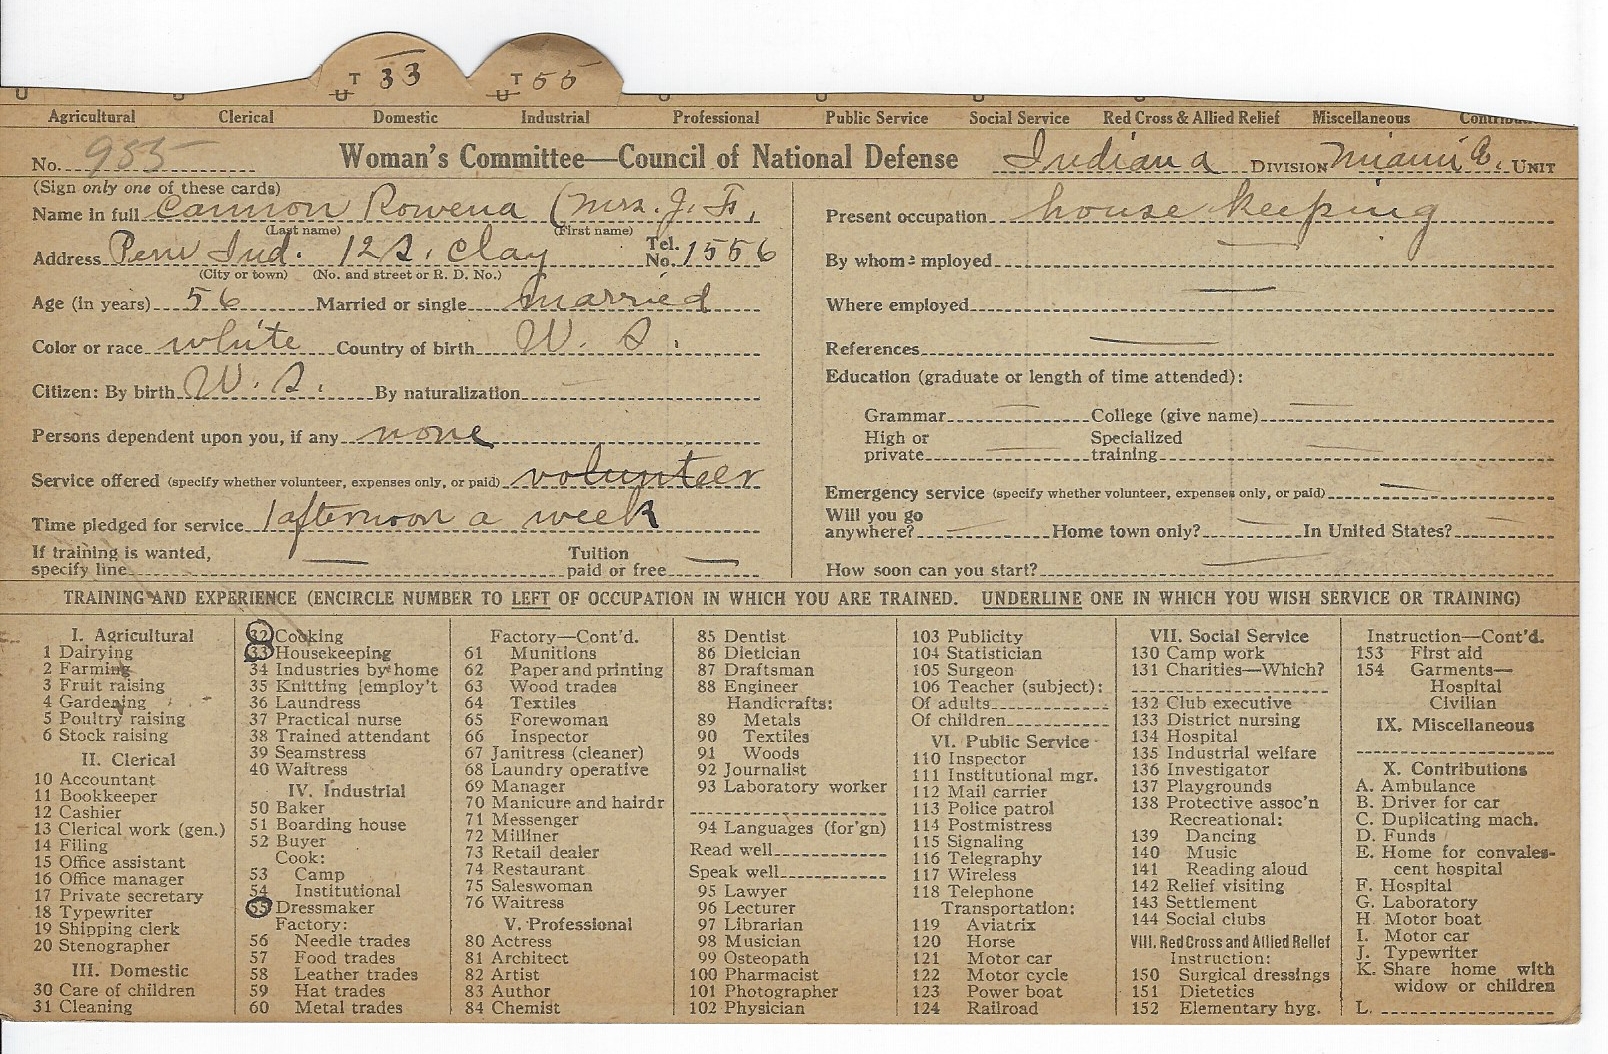 T 33 T 55
U U
Agricultural Clerical Domestic Industrial Professional Public Service Social Service Red Cross & Allied Relief Miscellaneous
No. 955 Woman's Committee—Council of National Defense Indiana DIVISION Miami Co. UNIT
(Sign only one of these cards)
Name in full Cannon Rowena (Mrs. J. F.,
(Last name) (First name)
Address Peru Ind. 12 S. Clay Tel. No. 1556
(City or town) (No. and street or R. D. No.)
Age (in years) 56 Married or single married
Color or race white Country of birth U. S.
Citizen: By birth U. S. By naturalization
Persons dependent upon you, if any none
Service offered (specify whether volunteer, expenses only, or paid) volunteer
Time pledged for service 1 afternoon a week
If training is wanted,
specify line Tuition
paid or free
Present occupation house keeping
By whom employed
Where employed
References
Education (graduate or length of time attended):
Grammar College (give name)
High or
private Specialized
training
Emergency service (specify whether volunteer, expenses only, or paid)
Will you go
anywhere? Home town only? In United States?
How soon can you start?
TRAINING AND EXPERIENCE (ENCIRCLE NUMBER TO LEFT OF OCCUPATION IN WHICH YOU ARE TRAINED. UNDERLINE ONE IN WHICH YOU WISH SERVICE OR TRAINING)
I. Agricultural
1 Dairying
2 Farming
3 Fruit raising
4 Gardening
5 Poultry raising
6 Stock raising
II. Clerical
10 Accountant
11 Bookkeeper
12 Cashier
13 Clerical work (gen.)
14 Filing
15 Office assistant
16 Office manager
17 Private secretary
18 Typewriter
19 Shipping clerk
20 Stenographer
III. Domestic
30 Care of children
31 Cleaning
32 Cooking
33 Housekeeping
34 Industries by home
35 Knitting [employ't
36 Laundress
37 Practical nurse
38 Trained attendant
39 Seamstress
40 Waitress
IV. Industrial
50 Baker
51 Boarding house
52 Buyer
Cook:
53 Camp
54 Institutional
55 Dressmaker
Factory:
56 Needle trades
57 Food trades
58 Leather trades
59 Hat trades
60 Metal trades
Factory—Cont'd.
61 Munitions
62 Paper and printing
63 Wood trades
64 Textiles
65 Forewoman
66 Inspector
67 Janitress (cleaner)
68 Laundry operative
69 Manager
70 Manicure and hairdr
71 Messenger
72 Milliner
73 Retail dealer
74 Restaurant
75 Saleswoman
76 Waitress
V. Professional
80 Actress
81 Architect
82 Artist
83 Author
84 Chemist
85 Dentist
86 Dietician
87 Draftsman
88 Engineer
Handicrafts:
89 Metals
90 Textiles
91 Woods
92 Journalist
93 Laboratory worker
94 Languages (for'gn)
Read well
Speak well
95 Lawyer
96 Lecturer
97 Librarian
98 Musician
99 Osteopath
100 Pharmacist
101 Photographer
102 Physician
103 Publicity
104 Statistician
105 Surgeon
106 Teacher (subject):
Of adults
Of children
VI. Public Service
110 Inspector
111 Institutional mgr.
112 Mail carrier
113 Police patrol
114 Postmistress
115 Signaling
116 Telegraphy
117 Wireless
118 Telephone
Transportation:
119 Aviatrix
120 Horse
121 Motor car
122 Motor cycle
123 Power boat
124 Railroad
VII. Social Service
130 Camp work
131 Charities—Which?
132 Club executive
133 District nursing
134 Hospital
135 Industrial welfare
136 Investigator
137 Playgrounds
138 Protective assoc'n
Recreational:
139 Dancing
140 Music
141 Reading aloud
142 Relief visiting
143 Settlement
144 Social clubs
VIII. Red Cross and Allied Relief
Instruction:
150 Surgical dressings
151 Dietetics
152 Elementary hyg.
Instruction—Cont'd.
153 First aid
154 Garments—
Hospital
Civilian
IX. Miscellaneous
X. Contributions
A. Ambulance
B. Driver for car
C. Duplicating mach.
D. Funds
E. Home for convales-
cent hospital
F. Hospital
G. Laboratory
H. Motor boat
I. Motor car
J. Typewriter
K. Share home with
widow or children
L.